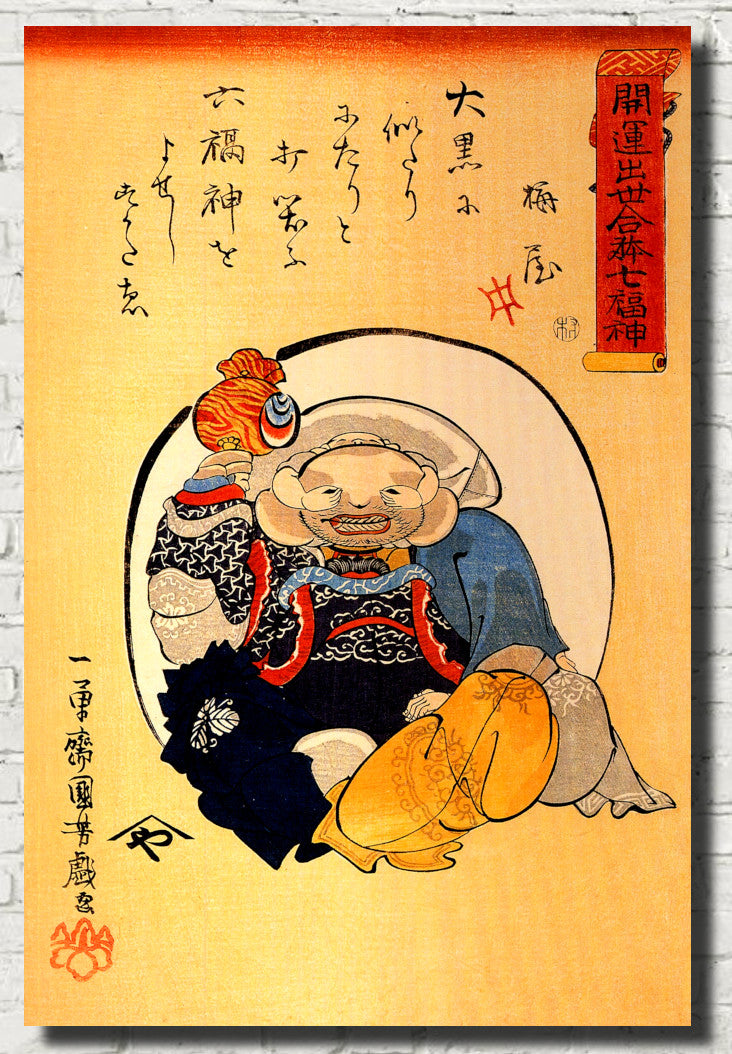 開運出世合躰七福神
梅屋
大黒に
似たり
にたりと
打笑ふ
六福神を
よせし
すかたゑ
一勇齋國芳戯画
や